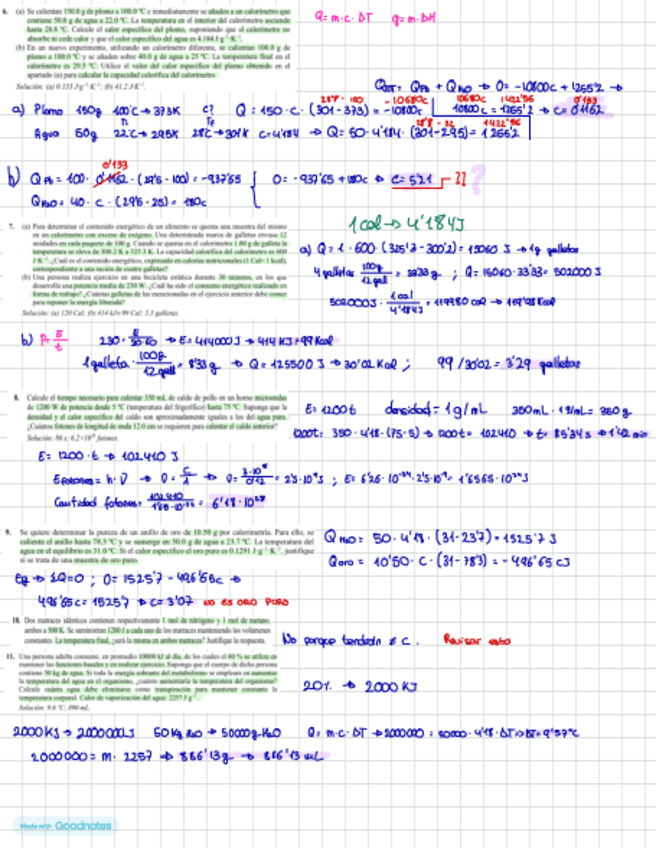 6. (a) Se calientan 150.0 g de plomo a 100.0 °C e inmediatamente se añaden a un calorímetro que
contiene 50.0 g de agua a 22.0 °C. La temperatura en el interior del calorímetro asciende
hasta 28.8 °C. Calcule el calor específico del plomo, suponiendo que el calorímetro no
absorbe ni cede calor y que el calor específico del agua es 4.184 J g⁻¹ K⁻¹.
(b) En un nuevo experimento, utilizando un calorímetro diferente, se calientan 100.0 g de
plomo a 100.0 °C y se añaden sobre 40.0 g de agua a 25 °C. La temperatura final en el
calorímetro es 29.5 °C. Utilice el valor del calor específico del plomo obtenido en el
apartado (a) para calcular la capacidad calorífica del calorímetro.
Solución: (a) 0.133 J g⁻¹ K⁻¹; (b) 41.2 J K⁻¹.
Q = m·c·ΔT q = m·ΔH
Q = QPb + QH2O → 0 = -10800c + 1265'2 →
a) Plomo 150g 100°C → 373K c? Q = 150·c·(301-373) = -10800c
28'8 - 100 -10680c
10800c = 1265'2 → c = 0'1162
10680c 1422'56 0'133
Agua 50g 22°C → 295K 28°C → 301K c=4'184 → Q = 50·4'184·(301-295) = 1265'2
28'8 - 22 1422'56
b) QPb = 100·0'1162·(29'5-100) = -937'65
0'133
0 = -937'65 + 180c → c = 5'21 → ?? ?
QH2O = 40·c·(29'5-25) = 180c
7. (a) Para determinar el contenido energético de un alimento se quema una muestra del mismo
en un calorímetro con exceso de oxígeno. Una determinada marca de galletas envasa 12
unidades en cada paquete de 100 g. Cuando se quema en el calorímetro 1.00 g de galleta la
temperatura se eleva de 300.2 K a 325.3 K. La capacidad calorífica del calorímetro es 600
J K⁻¹. ¿Cuál es el contenido energético, expresado en calorías nutricionales (1 Cal= 1 kcal),
correspondiente a una ración de cuatro galletas?
(b) Una persona realiza ejercicio en una bicicleta estática durante 30 minutos, en los que
desarrolla una potencia media de 230 W. ¿Cuál ha sido el consumo energético realizado en
forma de trabajo? ¿Cuántas galletas de las mencionadas en el ejercicio anterior debe comer
para reponer la energía liberada?
Solución: (a) 120 Cal; (b) 414 kJ≡99 Cal; 3.3 galletas.
1cal → 4'184J
a) Q = 1·600·(325'3-300'2) = 15060 J → 1g galletas
4 galletas 100g/12gall = 33'33g ; Q = 15060·33'33 = 502000 J
502000J · 1cal/4'184J = 119980 cal → 119'98 Kcal
b) P = E/t 230 = E/30·60 → E = 414000J → 414 KJ → 99 Kcal
1 galleta · 100g/12gall = 8'33g → Q = 125500 J → 30'02 Kcal ; 99/30'02 = 3'29 galletas
8. Calcule el tiempo necesario para calentar 350 mL de caldo de pollo en un horno microondas
de 1200 W de potencia desde 5 °C (temperatura del frigorífico) hasta 75 °C. Suponga que la
densidad y el calor específico del caldo son aproximadamente iguales a los del agua pura.
¿Cuántos fotones de longitud de onda 12.0 cm se requieren para calentar el caldo anterior?
Solución: 86 s; 6.2×10²⁸ fotones.
E = 1200t densidad = 1g/mL 350mL · 1g/mL = 350g
1200t = 350·4'18·(75-5) → 1200t = 102410 → t = 85'34s → 1'42 min
E = 1200·t → 102410 J
Efotones = h·ν → ν = c/λ → ν = 3·10⁸/0'12 = 2'5·10⁹s ; E = 6'626·10⁻³⁴·2'5·10⁹ = 1'6565·10⁻²⁴J
Cantidad fotones = 102410/1'65·10⁻²⁴ = 6'18·10²⁸
9. Se quiere determinar la pureza de un anillo de oro de 10.50 g por calorimetría. Para ello, se
calienta el anillo hasta 78.3 °C y se sumerge en 50.0 g de agua a 23.7 °C. La temperatura del
agua en el equilibrio es 31.0 °C. Si el calor específico el oro puro es 0.1291 J g⁻¹ K⁻¹, justifique
si se trata de una muestra de oro puro.
QH2O = 50·4'18·(31-23'7) = 1525'7 J
Qoro = 10'50·c·(31-78'3) = -496'65 cJ
Eq → ΣQ=0 ; 0 = 1525'7 - 496'65c →
496'65c = 1525'7 → c = 3'07 NO ES ORO PURO
10. Dos matraces idénticos contienen respectivamente 1 mol de nitrógeno y 1 mol de metano,
ambos a 500 K. Se suministran 1200 J a cada uno de los matraces manteniendo los volúmenes
constantes. La temperatura final, ¿será la misma en ambos matraces? Justifique la respuesta.
No porque tendrán ≠ c. Revisar esto
11. Una persona adulta consume, en promedio 10000 kJ al día, de los cuales el 80 % se utiliza en
mantener las funciones basales y en realizar ejercicio. Suponga que el cuerpo de dicha persona
contiene 50 kg de agua. Si toda la energía sobrante del metabolismo se emplease en aumentar
la temperatura del agua en el organismo, ¿cuánto aumentaría la temperatura del organismo?
Calcule cuánta agua debe eliminarse como transpiración para mantener constante la
temperatura corporal. Calor de vaporización del agua: 2257 J g⁻¹.
Solución: 9.6 °C; 890 mL.
20% → 2000 KJ
2000KJ → 2000000J 50Kg H2O → 50000g H2O Q = m·c·ΔT → 2000000 = 50000·4'18·ΔT → ΔT = 9'57°C
2000000 = m·2257 → 886'13g → 886'13 mL
Made with Goodnotes